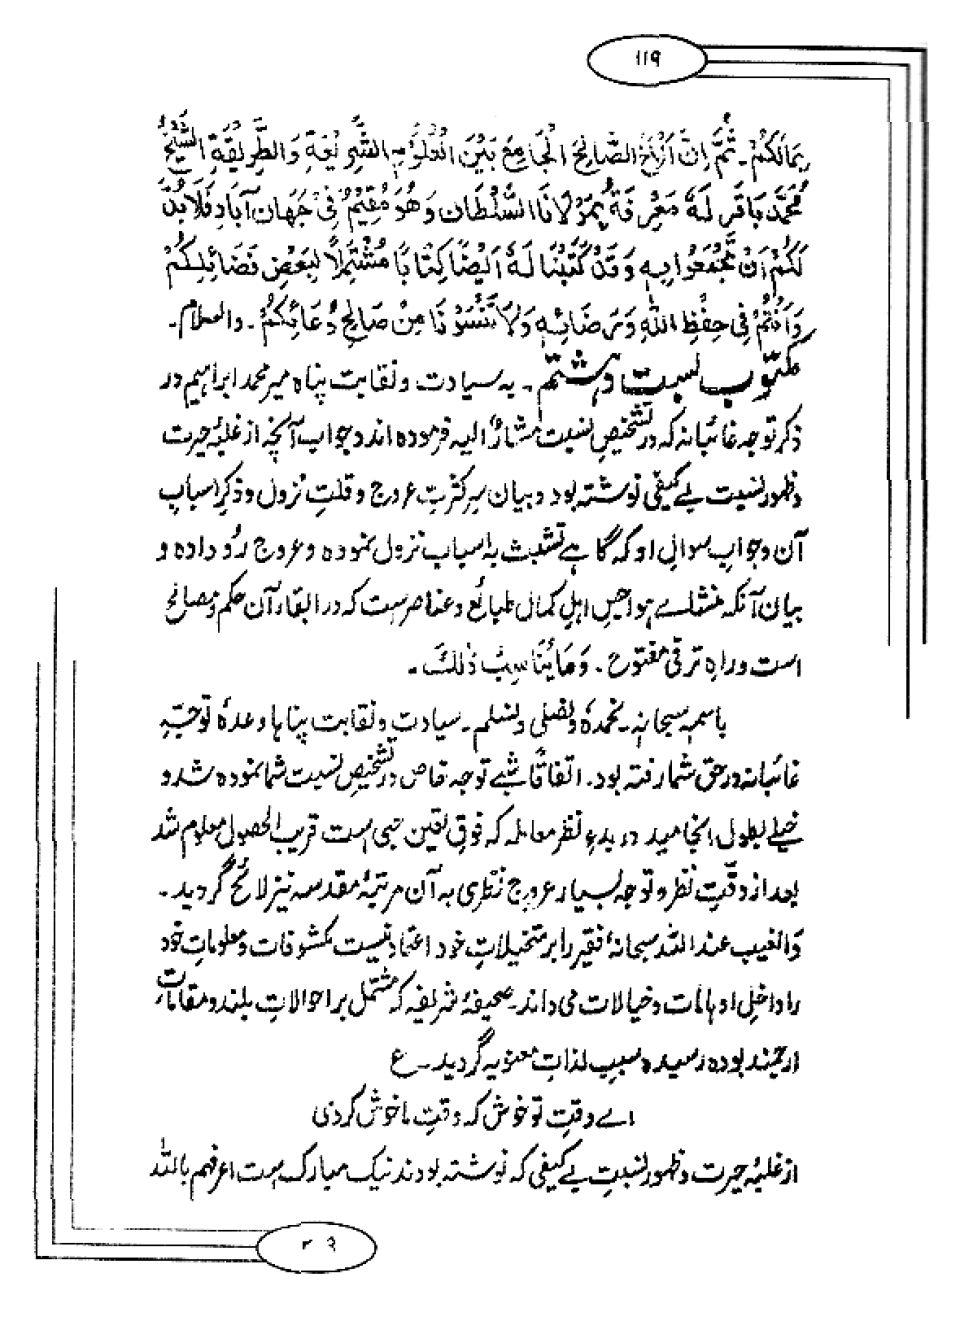 ۱۱۹
بِمَالَكُمْ۔ ثُمَّ اِنَّ الْاَخَ الصَّالِحَ الْجَامِعَ بَيْنَ الْعُلُوْمِ الشَّرِيْعَةِ وَالطَّرِيْقَةِ الشَّيْخُ
مُحَمَّد بَاقَر لَهٗ مَعْرِفَةٌ بِمَوْلَانَا السُّلْطَان وَهُوَ مُقِيْمٌ فِيْ جَهَان آبَاد فَلَا بُدَّ
لَكُمْ اَنْ تَجْمَعُوْا بِهٖ وَقَدْ كَتَبْنَا لَهٗ اَيْضًا كِتَابًا مُشْتَمِلًا لِبَعْضِ فَضَائِلِكُمْ
وَاَنْتُمْ فِيْ حِفْظِ اللّٰهِ وَرِضَائِهٖ وَلَا تَنْسَوْنَا مِنْ صَالِحِ دُعَائِكُمْ۔ والسلام۔
مکتوب بست و ہشتم۔ بہ سیادت و نقابت پناہ میر محمد ابراہیم در
ذکر توجہ غائبانہ کہ در تشخیص نسبت مشارٌ الیہ فرمودہ اند و جواب آنچہ از غلبۂ حیرت
و ظہور نسبت بے کیفی نوشتہ بود و بیان سر کثرت عروج و قلتِ نزول و ذکر اسباب
آن و جواب سوال او کہ گاہے تشبث بہ اسباب نزول نمودہ و عروج رُو دادہ و
بیان آنکہ منشائے ہواجس اہلِ کمال طبائع و عناصر ست کہ در ابقاء آن حکم و مصالح
است و راہِ ترقی مفتوح۔ وَمَا یُنَاسِبُ ذٰلِکَ۔
باسمہ سبحانہٖ۔ نحمدہٗ و نصلی و نسلم۔ سیادت و نقابت پناہا وعدۂ توجّہِ
غائبانہ در حق شما رفتہ بود۔ اتفاقًا شبے توجہ خاص در تشخیصِ نسبت شما نمودہ شد و
خیلے بطول انجامید در بدوِ نظر معاملہ کہ فوق تعین حبی ست قریب الحصول معلوم شد
بعد از دقّتِ نظر و توجہ بسیار عروج نظری بہ آن مرتبۂ مقدسہ نیز لائح گردید۔
وَالغیب عند اللہ سبحانہٗ فقیر را بر متخیلاتِ خود اعتماد نیست مکشوفات و معلوماتِ خود
را داخلِ اوہامات و خیالات می داند۔ صحیفۂ شریفہ کہ مشتمل بر احوالاتِ بلند و مقاماتِ
ارجمند بودہ رسیدہ سببِ لذاتِ معنویہ گردید۔ ع
اے وقتِ تو خوش کہ وقتِ ما خوش کردی
از غلبۂ حیرت و ظہور نسبتِ بے کیفی کہ نوشتہ بودند نیک مبارک ست اعرفہم باللہ